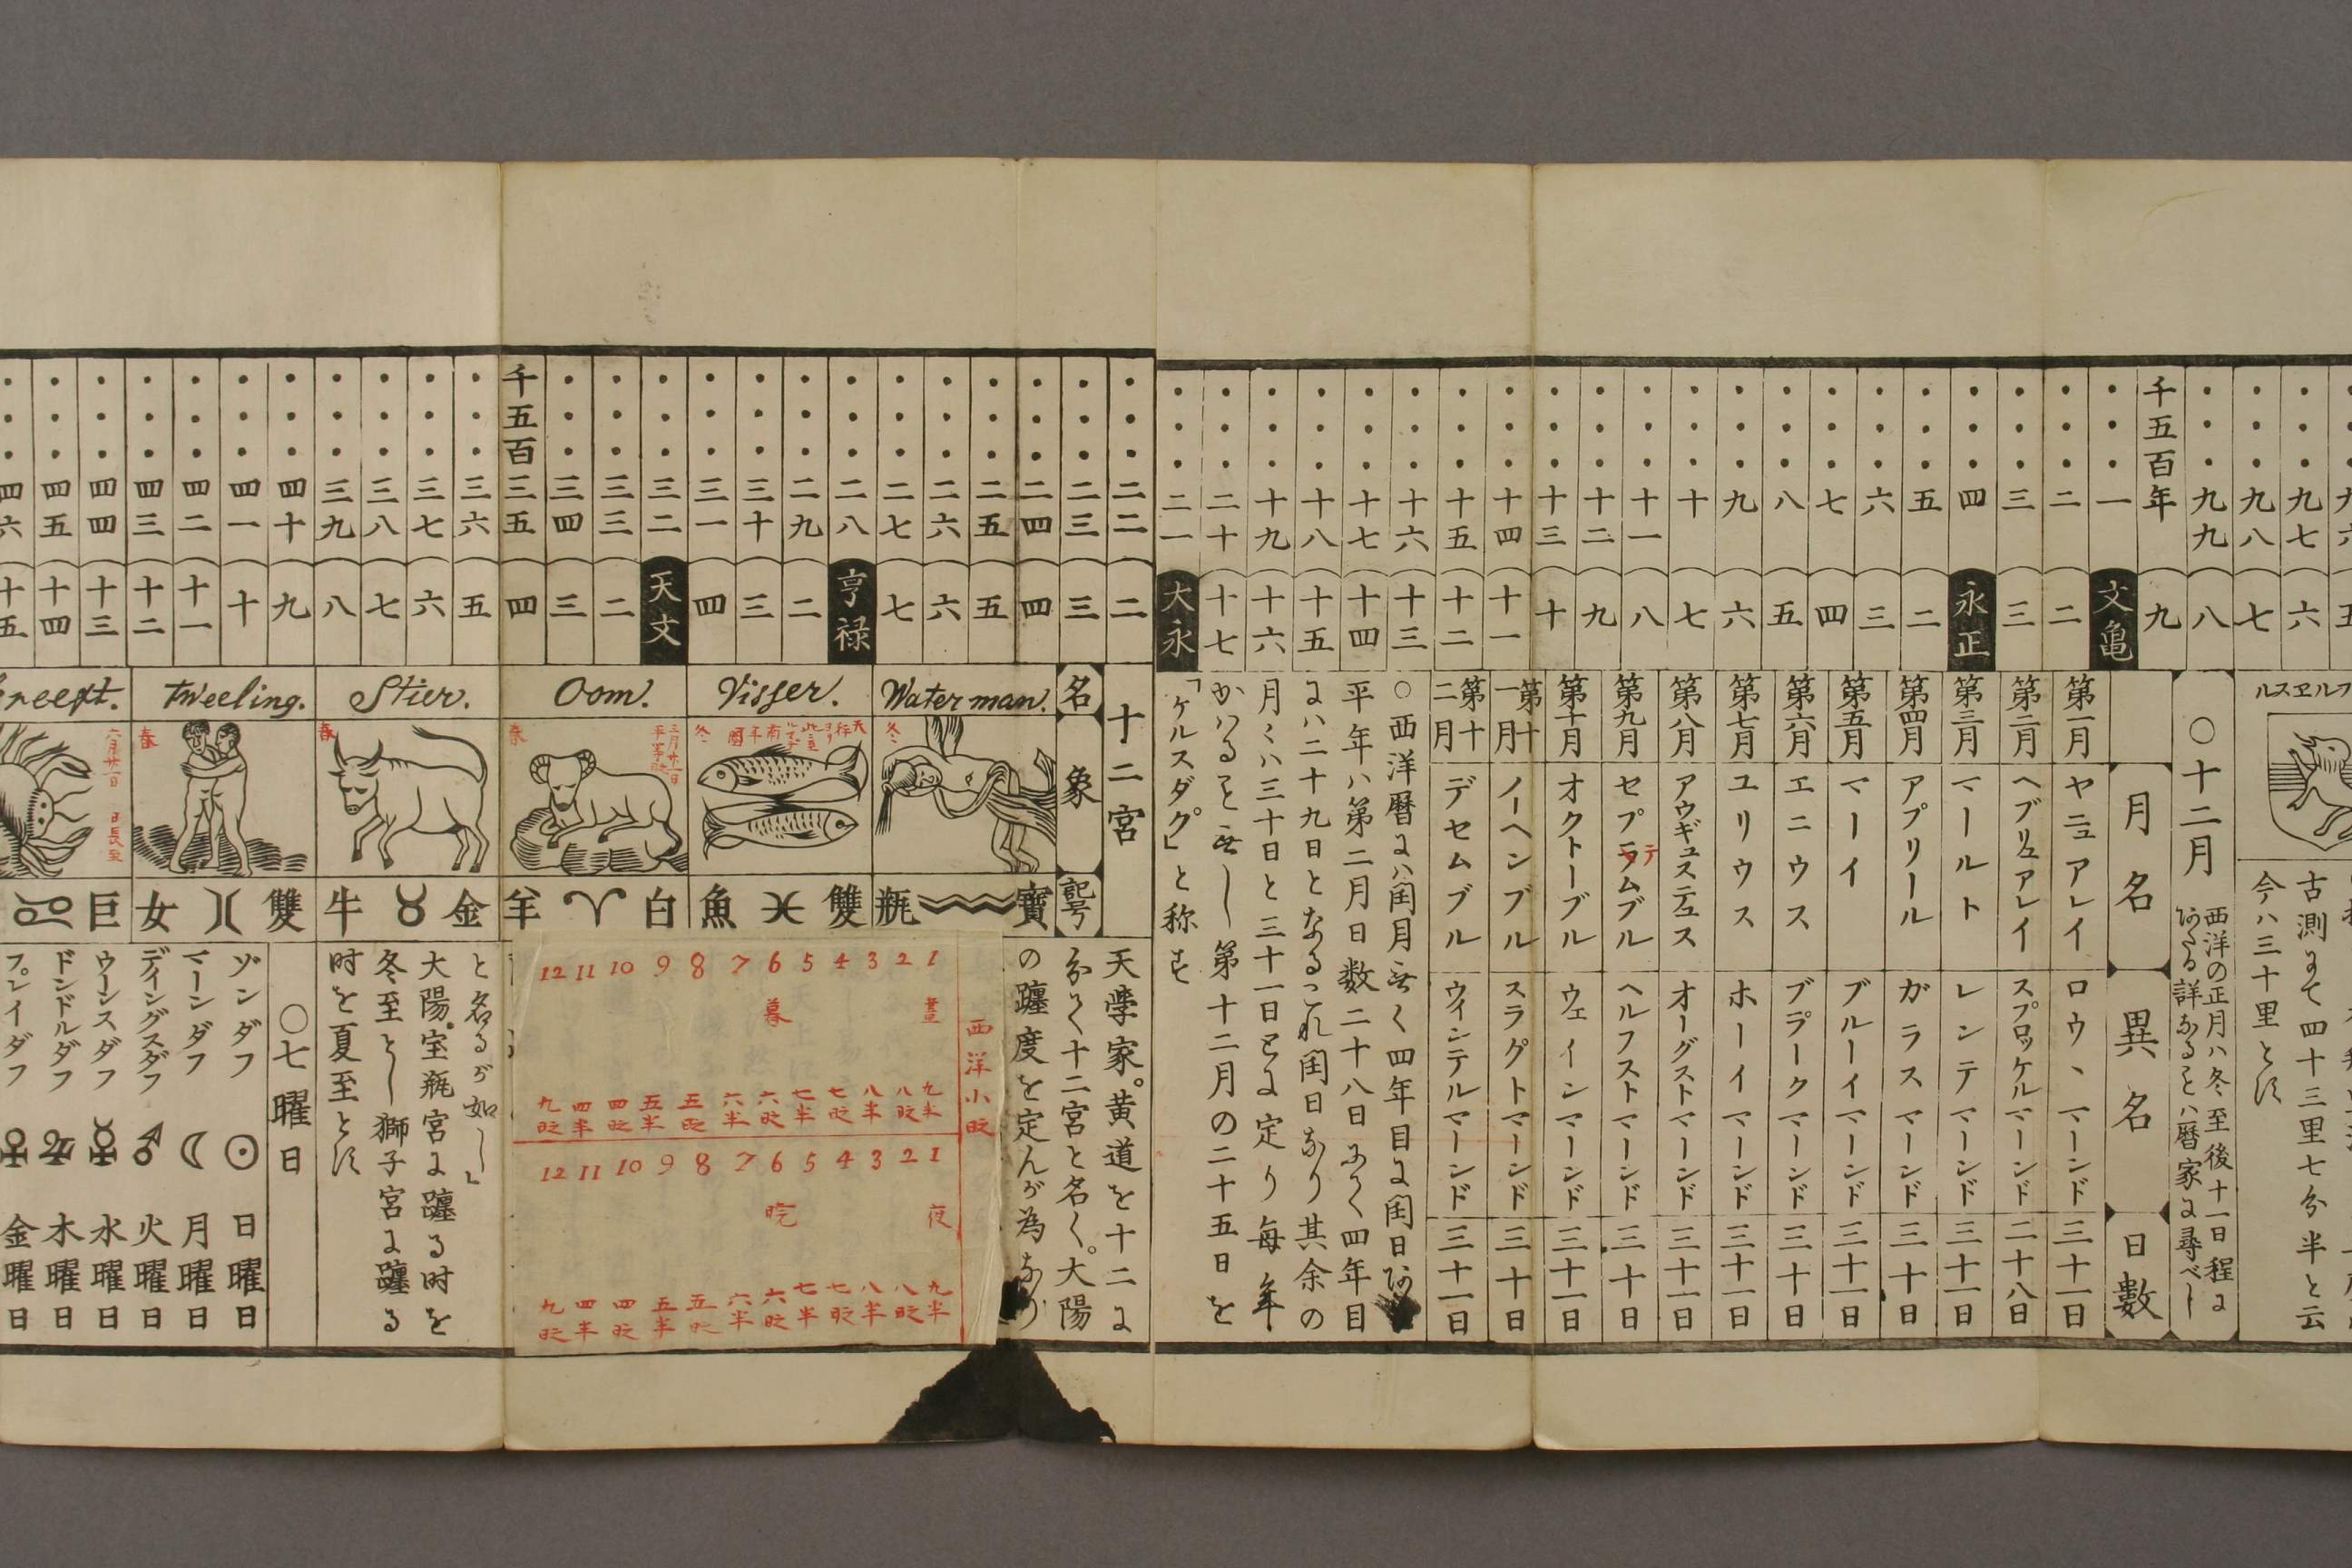 千五百年
九九
九八
九七
一
二
三
四
五
六
七
八
九
十
十一
十二
十三
十四
十五
十六
十七
十八
十九
二十
二一
六
七
八
九
文亀
二
三
永正
二
三
四
五
六
七
八
九
十
十一
十二
十三
十四
十五
十六
十七
大永
古測にて四十三里七分半と云
今ハ三十里とす
○十二月
西洋の正月ハ冬至後十一日程に
月名
異名
日數
第一月 ヤニュアレイ ロウ、マーンド 三十一日
第二月 ヘブリュアレイ スプロッケルマーンド 二十八日
第三月 マールト レンテマーンド 三十一日
第四月 アプリール ガラスマーンド 三十日
第五月 マーイ ブルーイマーンド 三十一日
第六月 エニウス ブラークマーンド 三十日
第七月 ユリウス ホーイマーンド 三十一日
第八月 アウギュステュス オーグストマーンド 三十一日
第九月 セプテムブル ヘルフストマーンド 三十日
第十月 オクトーブル ウェインマーンド 三十一日
第十一月 ノーヘンブル スラグトマーンド 三十日
第十二月 デセムブル ウインテルマーンド 三十一日
○西洋暦にハ閏月無く四年目に閏日
平年ハ第二月日数二十八日にして四年目
にハ二十九日となるこれ閏日なり其余の
月々ハ三十日と三十一日とに定り毎年
かハることなし第十二月の二十五日を
「ケルスダグ」と称す
二二
二三
二四
二五
二六
二七
二八
二九
三十
三一
三二
三三
三四
千五百三五
三六
三七
三八
三九
四十
四一
四二
四三
四四
四五
四六
二
三
四
五
六
七
亨禄
二
三
四
天文
二
三
四
五
六
七
八
九
十
十一
十二
十三
十四
十五
十二宮
名
象
Water man.
Visser.
Oom.
Stier.
Tweeling.
冬
冬
春
春
春
寶 瓶
雙 ♓ 魚
白 ♈ 羊
金 ♉ 牛
雙 女
巨
天学家。黄道を十二に
分て十二宮と名く。大陽
の躔度を定んが為なり
西洋小時
1 2 3 4 5 6 7 8 9 10 11 12
晝
暮
九半 八時 八半 七時 七半 六時 六半 五時 五半 四時 四半 九時
1 2 3 4 5 6 7 8 9 10 11 12
夜
九半 八時 八半 七時 七半 六時 六半 五時 五半 四時 四半 九時
と名るが如し」
大陽。宝瓶宮に躔る时を
冬至とし獅子宮に躔る
时を夏至とす
○七曜日
ゾンダフ ☉ 日曜日
マーンダフ ☾ 月曜日
ディングスダフ ♂ 火曜日
ウーンスダフ ☿ 水曜日
ドンドルダフ ♃ 木曜日
フレイダフ ♀ 金曜日